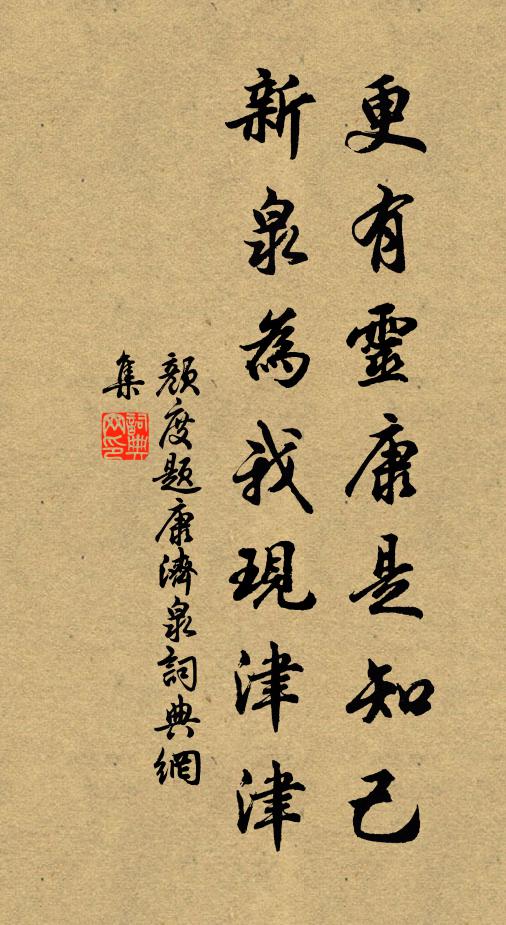 更有靈康是知己
新泉為我現津津
顏度題康濟泉詞典網
集
詞典网印